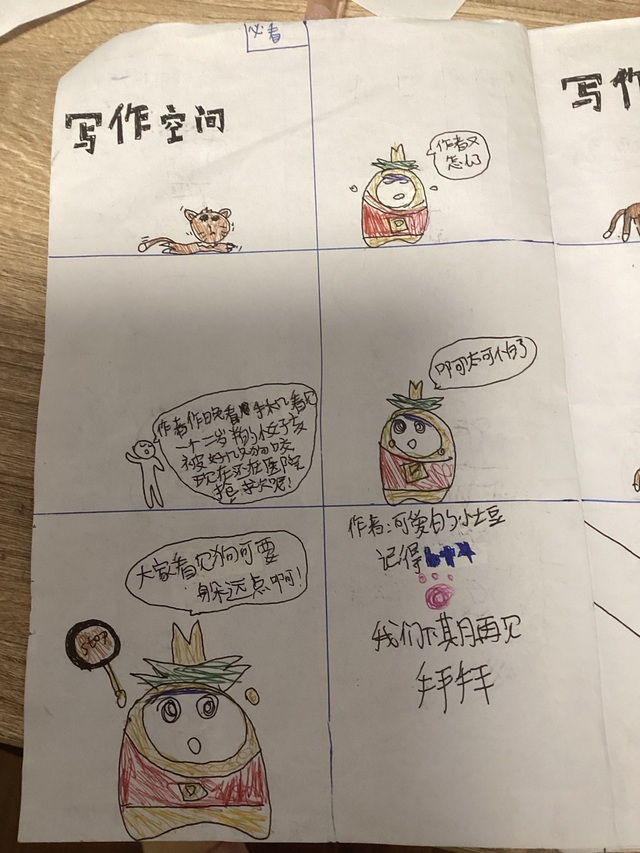 必看
写作空间
作者又
怎么了
作者作晚看手机看见
一个二岁的小女孩
被好几只狗咬
现在还在医院
抢救呢!
啊可太可怕了
大家看见狗可要
躲远点啊!
作者:可爱的小土豆
记得
我们下期再见
拜拜
写作